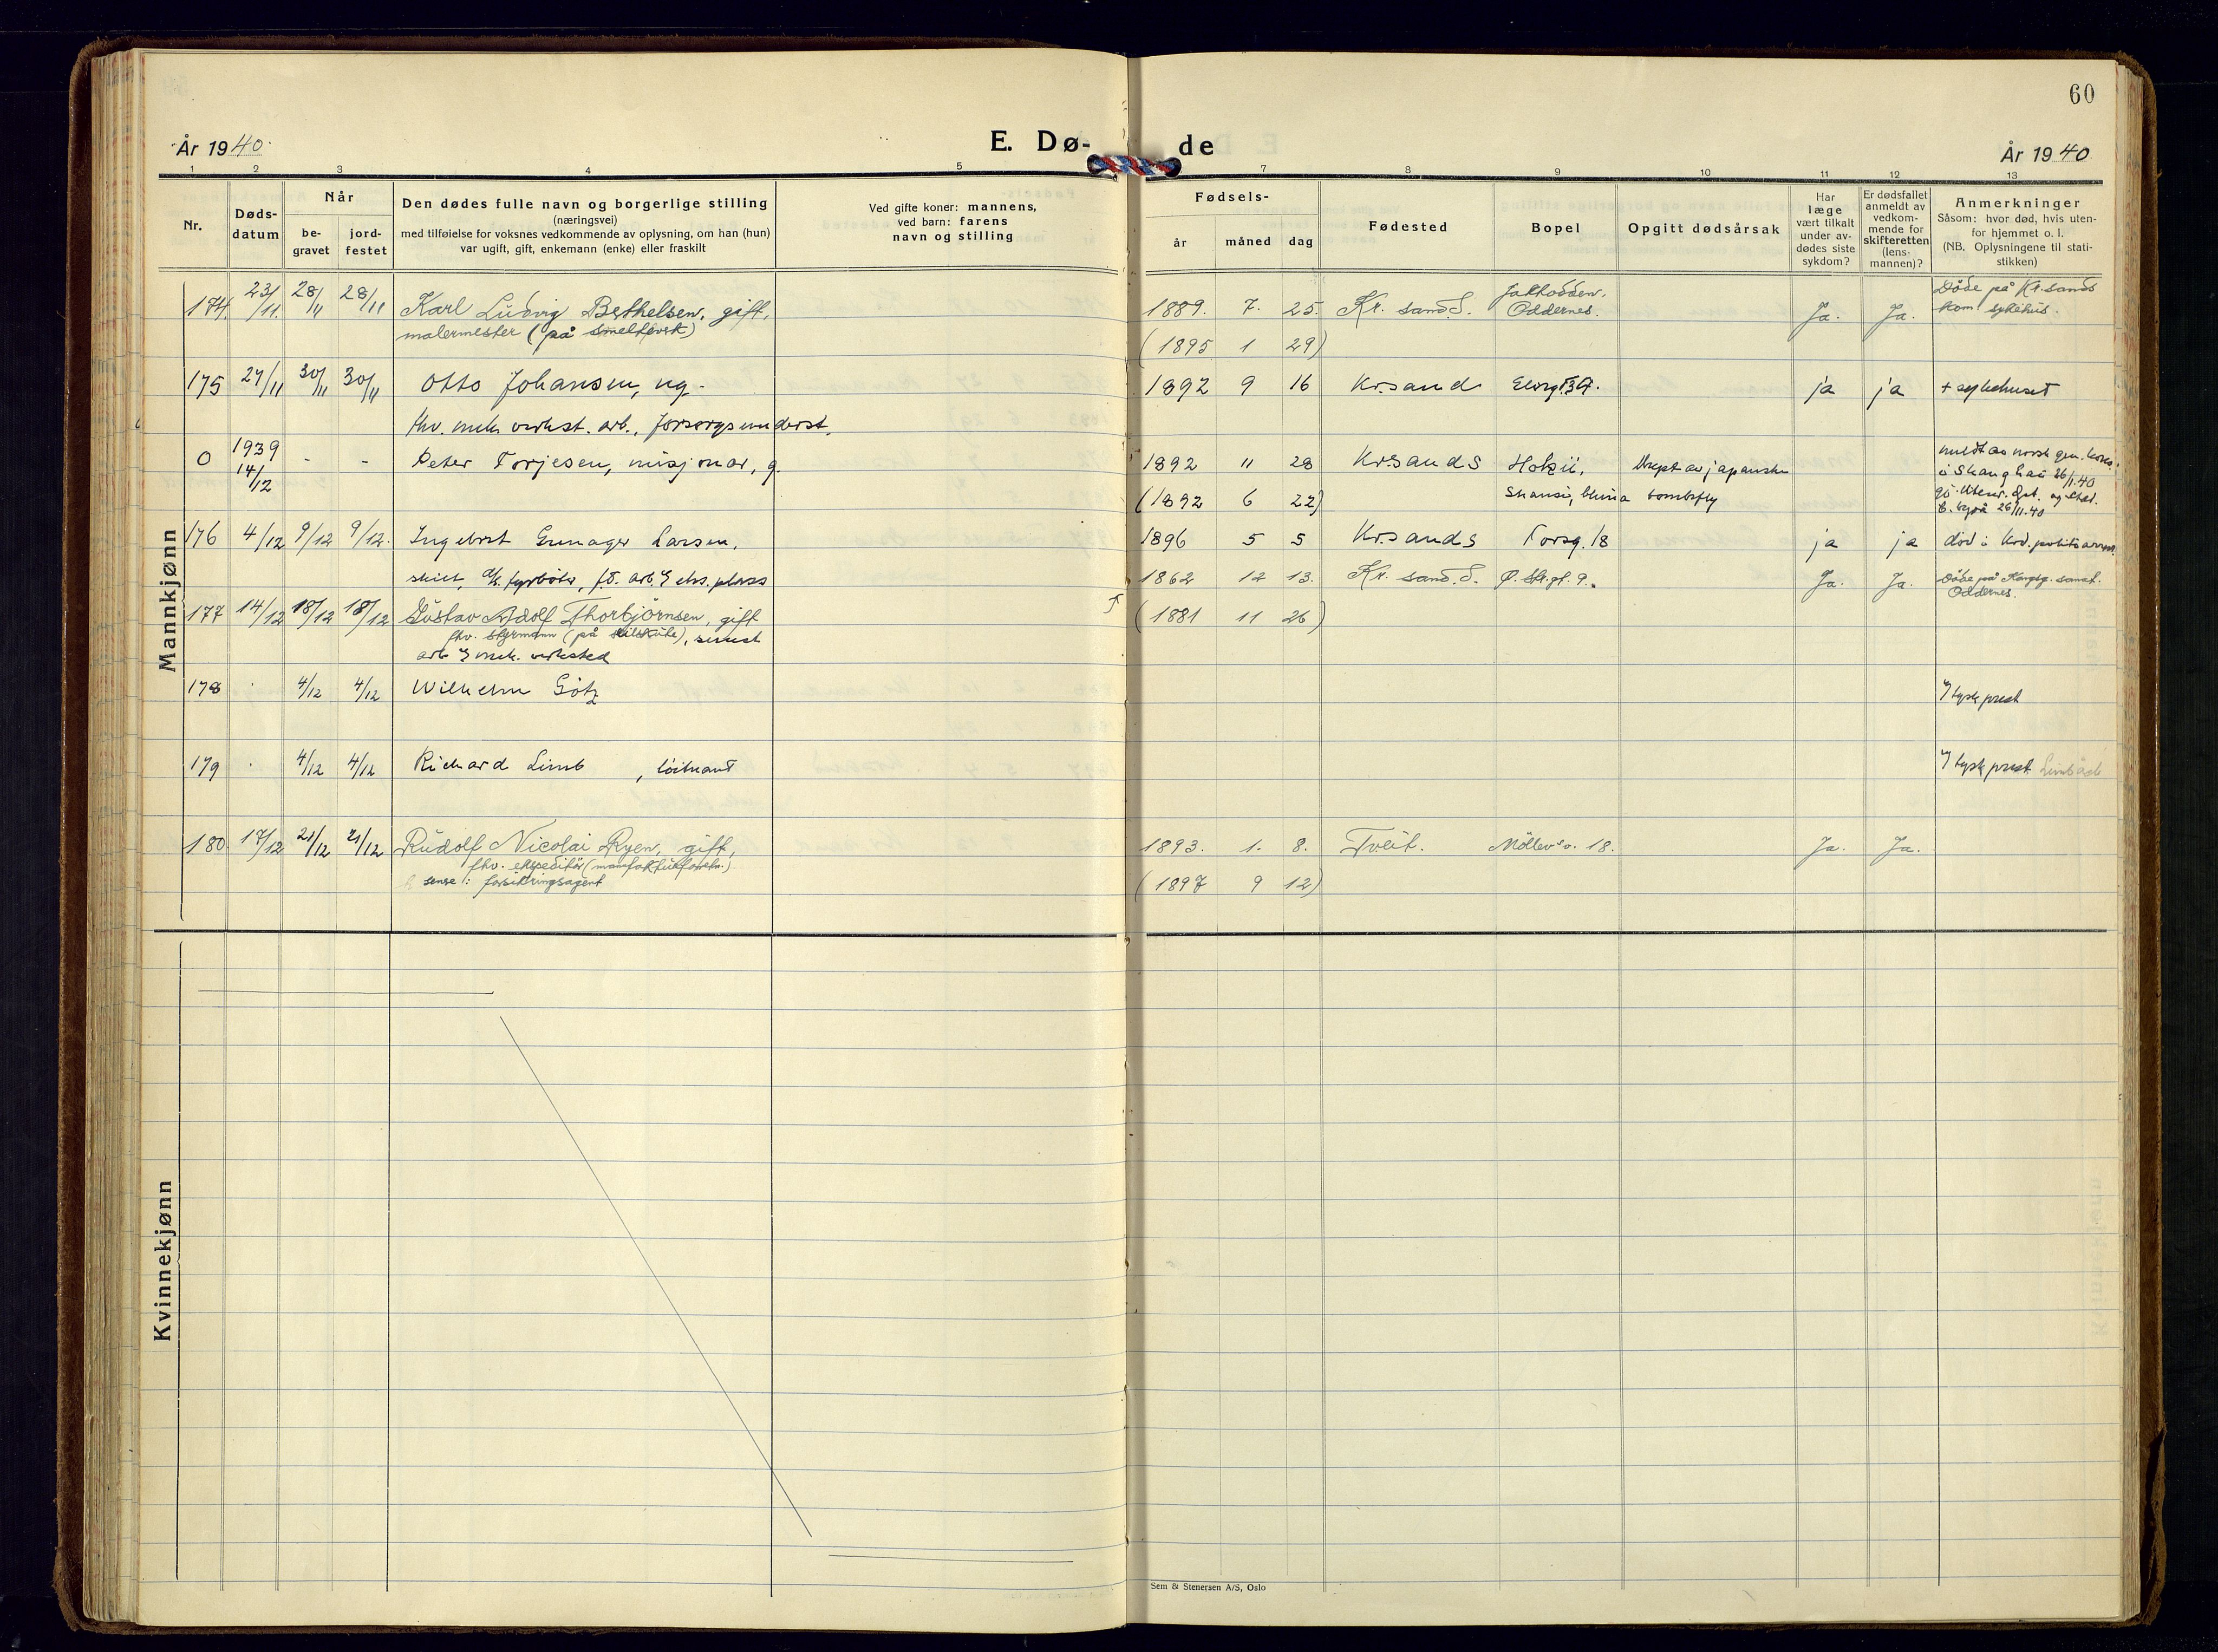 60
År 1940.
E. Dø-
de
År 1940
1 2 3 4 5 7 8 9 10 11 12 13
Nr.
Døds-
datum
Når
be-
gravet
jord-
festet
Den dødes fulle navn og borgerlige stilling
(næringsvei)
med tilføielse for voksnes vedkommende av oplysning, om han (hun)
var ugift, gift, enkemann (enke) eller fraskilt
Ved gifte koner: mannens,
ved barn: farens
navn og stilling
Fødsels-
år måned dag
Fødested
Bopel
Opgitt dødsårsak
Har
læge
vært tilkalt
under av-
dødes siste
sykdom?
Er dødsfallet
anmeldt av
vedkom-
mende for
skifteretten
(lens-
mannen)?
Anmerkninger
Såsom: hvor død, hvis uten-
for hjemmet o. l.
(NB. Oplysningene til stati-
stikken)
Mannkjønn
174. 23/11. 28/11 28/11 Karl Ludvig Berthelsen, gift, 1889. 7. 25. Kr. sand. S. Oddernes. Ja. Ja. Døde på Kr.sands
malermester (på kom sykehus.
(1895 1 29)
175 27/11 30/11 30/11 Otto Johansen, ug. 1892 9 16 Krsand ja ja + sykehuset
fhv. mek. verkst. arb., forsorgsunderst.
0 1939 14/12 - - Peter Torjesen, misjonær, g. 1892 11 28 Krsands Hokü, Drept av japanske meldt av norsk gen. kons.
(1892 6 22) Shansi, China bombefly i Shanghai 26/1.40
26/11.40
176 4/12 9/12 9/12. Ingebret Larsen, 1896 5 5 Krsands Torsg. 18 ja ja død i Krd.
skilt, fyrbøter,
177 14/12 18/12 18/12 Gustav Adolf Thorbjørnsen, gift 1862 12 13. Kr. sand. S. Ja. Ja. Døde på
fhv. styrmann (på seilskute), senest (1881 11 26) Oddernes.
arb. mek. verksted
178 . 4/12 4/12 Wilhelm Götz tysk prest
179 . 4/12 4/12 Richard Limb , løitnant tysk prest
180. 17/12 21/12 21/12 Rudolf Nicolai Ryen, gift, 1893. 1. 8. Tveit. Möllev. 18. Ja. Ja.
fhv. ekspeditør (manufakturforretn.)
senere: forsikringsagent (1897 9 12)
Kvinnekjønn
Sem & Stenersen A/S, Oslo